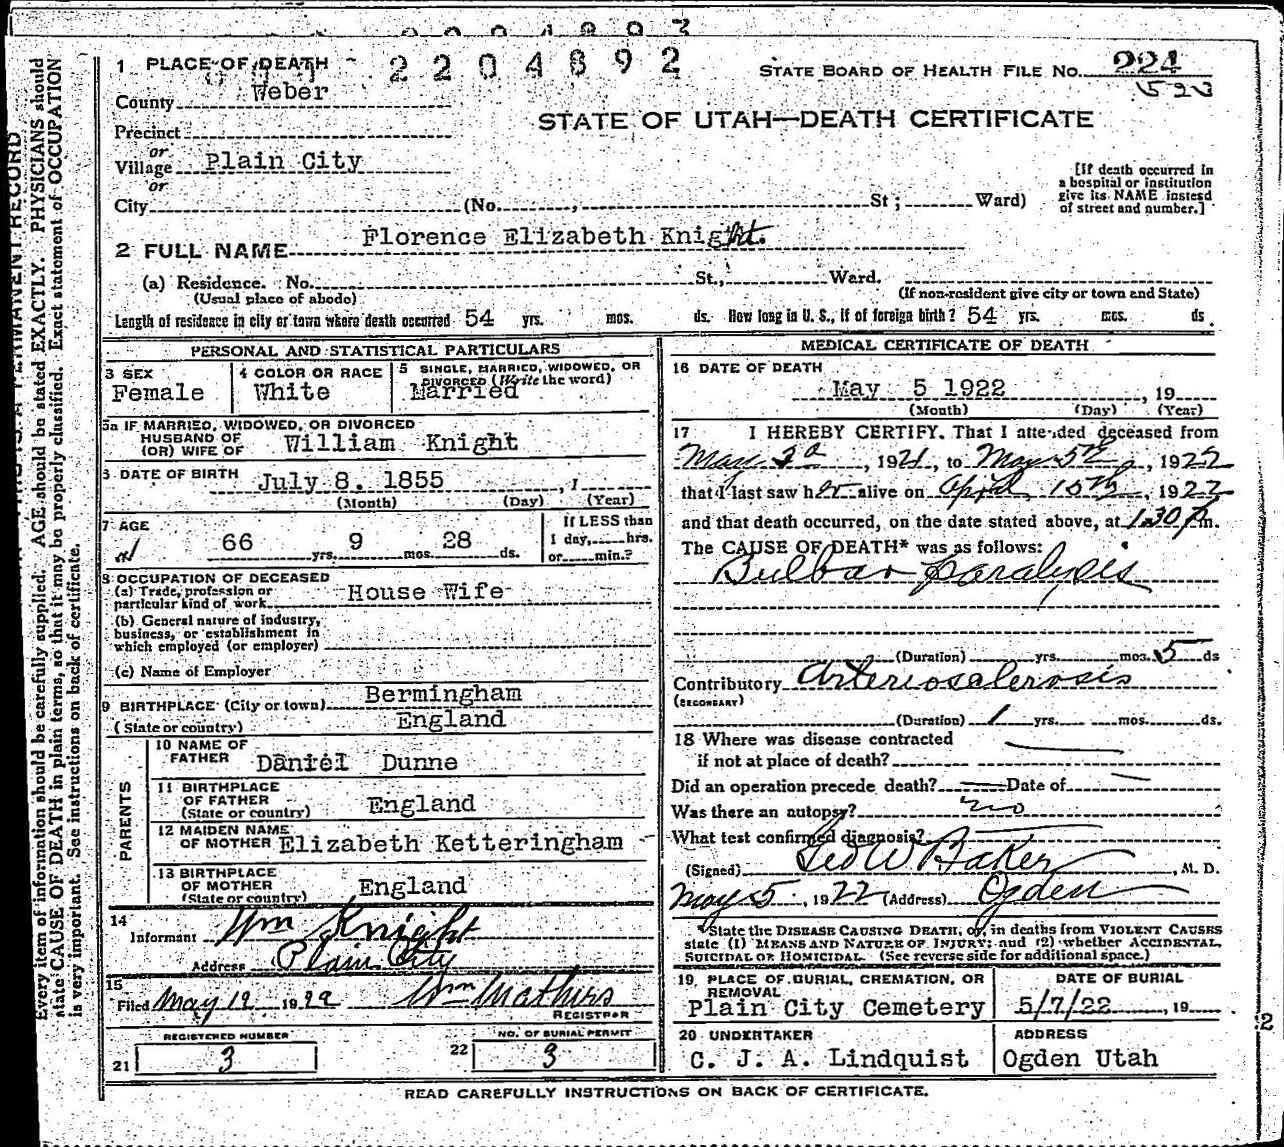 2204893
1 PLACE OF DEATH 2204892 STATE BOARD OF HEALTH FILE NO. 224
523
County Weber
STATE OF UTAH—DEATH CERTIFICATE
Precinct
or
Village Plain City
or
City (No. , St ; Ward)
[If death occurred in
a hospital or institution
give its NAME instead
of street and number.]
2 FULL NAME Florence Elizabeth Knight.
(a) Residence. No. St., Ward.
(Usual place of abode) (If non-resident give city or town and State)
Length of residence in city or town where death occurred 54 yrs. mos. ds. How long in U. S., if of foreign birth? 54 yrs. mos. ds.
PERSONAL AND STATISTICAL PARTICULARS
3 SEX Female
4 COLOR OR RACE White
5 SINGLE, MARRIED, WIDOWED, OR
DIVORCED (Write the word)
Married
5a IF MARRIED, WIDOWED, OR DIVORCED
HUSBAND OF
(OR) WIFE OF William Knight
6 DATE OF BIRTH July 8. 1855 , 1
(Month) (Day) (Year)
7 AGE
66 yrs. 9 mos. 28 ds.
If LESS than
1 day, hrs.
or min.?
8 OCCUPATION OF DECEASED
(a) Trade, profession or
particular kind of work House Wife
(b) General nature of industry,
business, or establishment in
which employed (or employer)
(c) Name of Employer
9 BIRTHPLACE (City or town) Bermingham
(State or country) England
PARENTS
10 NAME OF
FATHER Daniel Dunne
11 BIRTHPLACE
OF FATHER
(State or country) England
12 MAIDEN NAME
OF MOTHER Elizabeth Ketteringham
13 BIRTHPLACE
OF MOTHER
(State or country) England
14
Informant Wm Knight
Address Plain City
15
Filed May 12 1922 Wm Mathers
REGISTRAR
REGISTERED NUMBER
21 3
NO. OF BURIAL PERMIT
22 3
MEDICAL CERTIFICATE OF DEATH
16 DATE OF DEATH
May 5 1922 , 19
(Month) (Day) (Year)
17 I HEREBY CERTIFY, That I attended deceased from
May 3d , 1921, to May 5th , 1922
that I last saw her alive on April 15th , 1922
and that death occurred, on the date stated above, at 1.30 P m.
The CAUSE OF DEATH* was as follows:
Bulbar paralysis
(Duration) yrs. mos. 5 ds
Contributory Arteriosclerosis
(SECONDARY)
(Duration) 1 yrs. mos. ds.
18 Where was disease contracted
if not at place of death?
Did an operation precede death? Date of
Was there an autopsy? no
What test confirmed diagnosis?
(Signed) Geo W Baker , M. D.
May 5 , 1922 (Address) Ogden
*State the DISEASE CAUSING DEATH, or, in deaths from VIOLENT CAUSES
state (1) MEANS AND NATURE OF INJURY; and (2) whether ACCIDENTAL,
SUICIDAL OR HOMICIDAL. (See reverse side for additional space.)
19 PLACE OF BURIAL, CREMATION, OR
REMOVAL
Plain City Cemetery
DATE OF BURIAL
5/7/22 , 19
20 UNDERTAKER
C. J. A. Lindquist
ADDRESS
Ogden Utah
READ CAREFULLY INSTRUCTIONS ON BACK OF CERTIFICATE.
PERMANENT RECORD
Every item of information should be carefully supplied. AGE should be stated EXACTLY. PHYSICIANS should
state CAUSE OF DEATH in plain terms, so that it may be properly classified. Exact statement of OCCUPATION
is very important. See instructions on back of certificate.
2